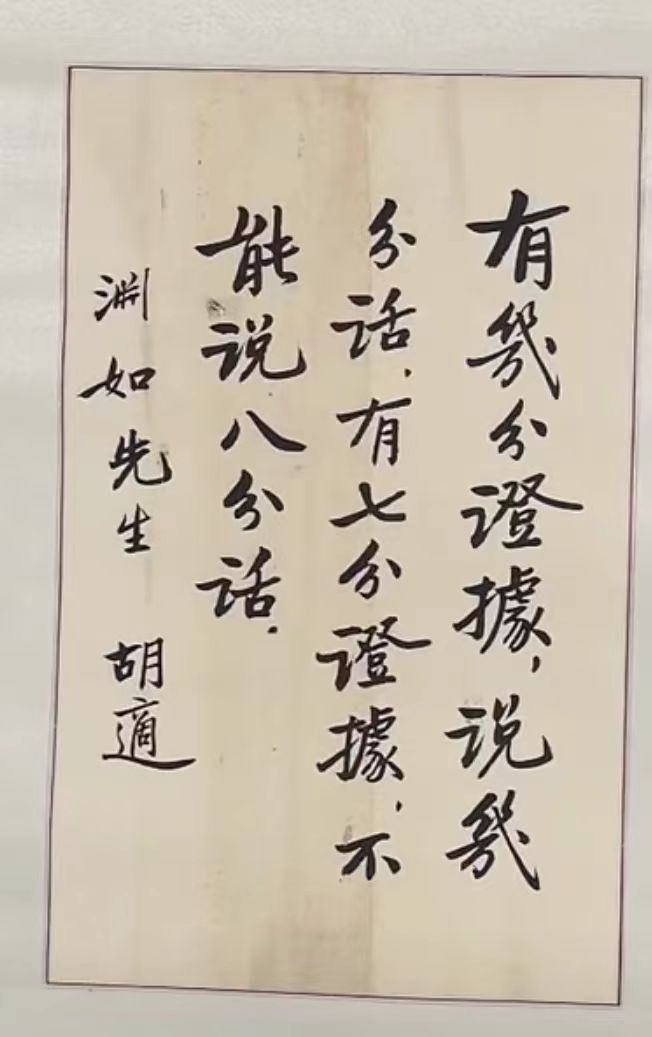 有幾分證據，说幾
分話，有七分證據，不
能说八分話．
渊如先生 胡適